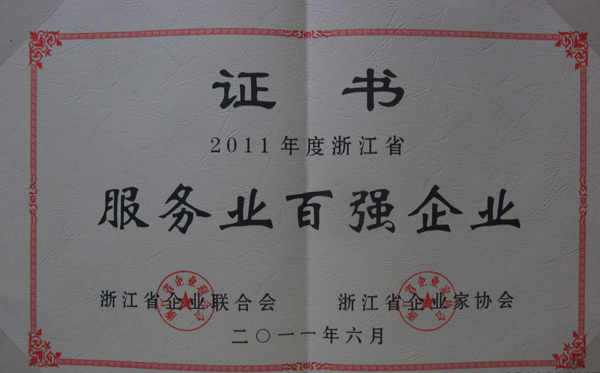 证书
2011年度浙江省
服务业百强企业
浙江省企业联合会 浙江省企业家协会
二〇一一年六月